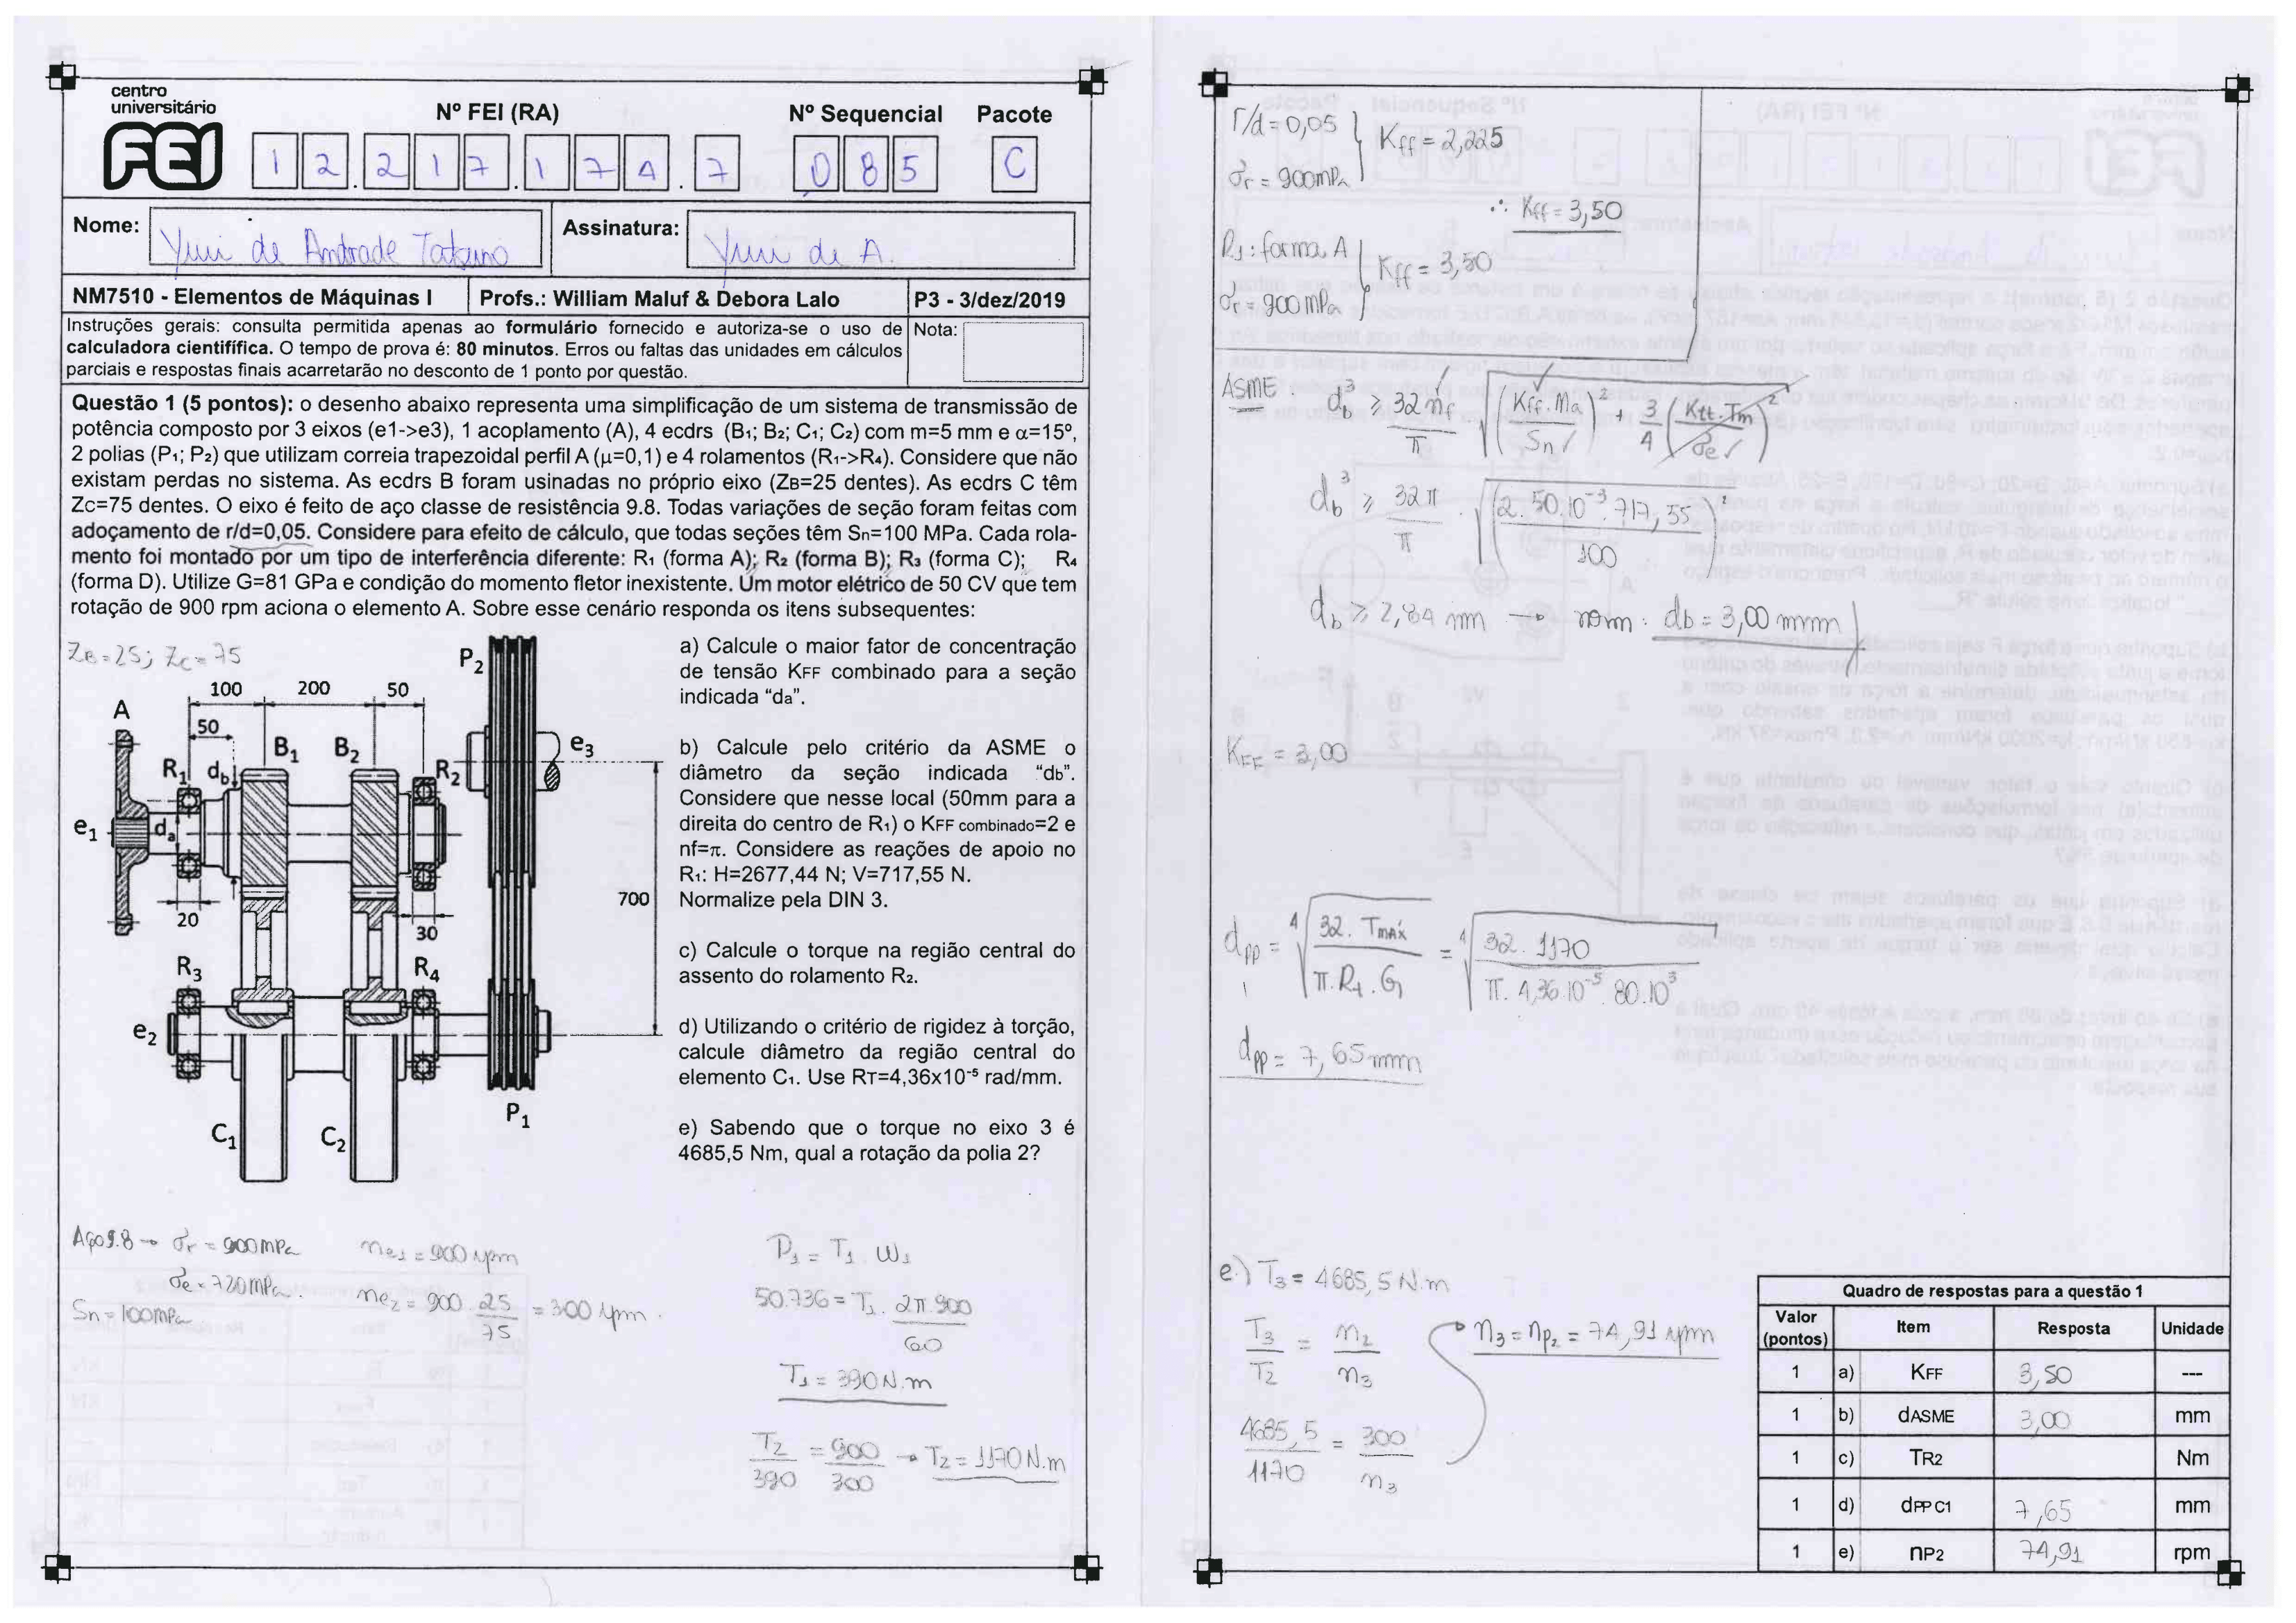 centro
universitário
FEI
Nº FEI (RA)
Nº Sequencial
Pacote
1 2 . 2 1 7 . 1 7 4 . 7
0 8 5
C
Nome: Yuri de Andrade Tatuno
Assinatura: Yuri de A.
NM7510 - Elementos de Máquinas I
Profs.: William Maluf & Debora Lalo
P3 - 3/dez/2019
Instruções gerais: consulta permitida apenas ao formulário fornecido e autoriza-se o uso de
calculadora cientififica. O tempo de prova é: 80 minutos. Erros ou faltas das unidades em cálculos
parciais e respostas finais acarretarão no desconto de 1 ponto por questão.
Nota:
Questão 1 (5 pontos): o desenho abaixo representa uma simplificação de um sistema de transmissão de
potência composto por 3 eixos (e1->e3), 1 acoplamento (A), 4 ecdrs (B₁; B₂; C₁; C₂) com m=5 mm e α=15º,
2 polias (P₁; P₂) que utilizam correia trapezoidal perfil A (μ=0,1) e 4 rolamentos (R₁->R₄). Considere que não
existam perdas no sistema. As ecdrs B foram usinadas no próprio eixo (ZB=25 dentes). As ecdrs C têm
Zc=75 dentes. O eixo é feito de aço classe de resistência 9.8. Todas variações de seção foram feitas com
adoçamento de r/d=0,05. Considere para efeito de cálculo, que todas seções têm Sn=100 MPa. Cada rola-
mento foi montado por um tipo de interferência diferente: R₁ (forma A); R₂ (forma B); R₃ (forma C); R₄
(forma D). Utilize G=81 GPa e condição do momento fletor inexistente. Um motor elétrico de 50 CV que tem
rotação de 900 rpm aciona o elemento A. Sobre esse cenário responda os itens subsequentes:
ZB=25; ZC=75
100 200 50
50
A
R₁
db
B₁
B₂
R₂
P₂
e₃
e₁
da
20
30
700
R₃
R₄
e₂
C₁
C₂
P₁
a) Calcule o maior fator de concentração
de tensão KFF combinado para a seção
indicada “da”.
b) Calcule pelo critério da ASME o
diâmetro da seção indicada “db”.
Considere que nesse local (50mm para a
direita do centro de R₁) o KFF combinado=2 e
nf=π. Considere as reações de apoio no
R₁: H=2677,44 N; V=717,55 N.
Normalize pela DIN 3.
c) Calcule o torque na região central do
assento do rolamento R₂.
d) Utilizando o critério de rigidez à torção,
calcule diâmetro da região central do
elemento C₁. Use RT=4,36x10⁻⁵ rad/mm.
e) Sabendo que o torque no eixo 3 é
4685,5 Nm, qual a rotação da polia 2?
Aço 9.8 → σr = 900MPa
σe = 720MPa.
Sn = 100MPa
ne1 = 900 rpm
ne2 = 900 . 25/75 = 300 rpm.
P1 = T1 . ω1
50.736 = T1 . 2π.900/60
T1 = 390 N.m
T2/390 = 900/300 → T2 = 1170 N.m
r/d = 0,05
σr = 900MPa
Kff = 2,225
∴ Kff = 3,50
R1: forma A
σr = 900MPa
Kff = 3,50
ASME. db³ ≥ 32 nf/π . √((Kff.Ma/Sn)² + 3/4 (Ktt.Tm/σe)²)
db³ ≥ 32π/π . √((2.50.10⁻³.717,55/100)²)
db ≥ 2,84 mm → norm: db = 3,00 mm
KFF = 3,00
dpp = ⁴√(32.Tmáx/π.Rt.G) = ⁴√(32.1170/π.4,36.10⁻⁵.80.10³)
dpp = 7,65 mm
e.) T3 = 4685,5 N.m
T3/T2 = n2/n3
n3 = np2 = 74,91 rpm
4685,5/1170 = 300/n3
Quadro de respostas para a questão 1
Valor (pontos) Item Resposta Unidade
1 a) KFF 3,50 ---
1 b) dASME 3,00 mm
1 c) TR2 Nm
1 d) dPP C1 7,65 mm
1 e) nP2 74,91 rpm